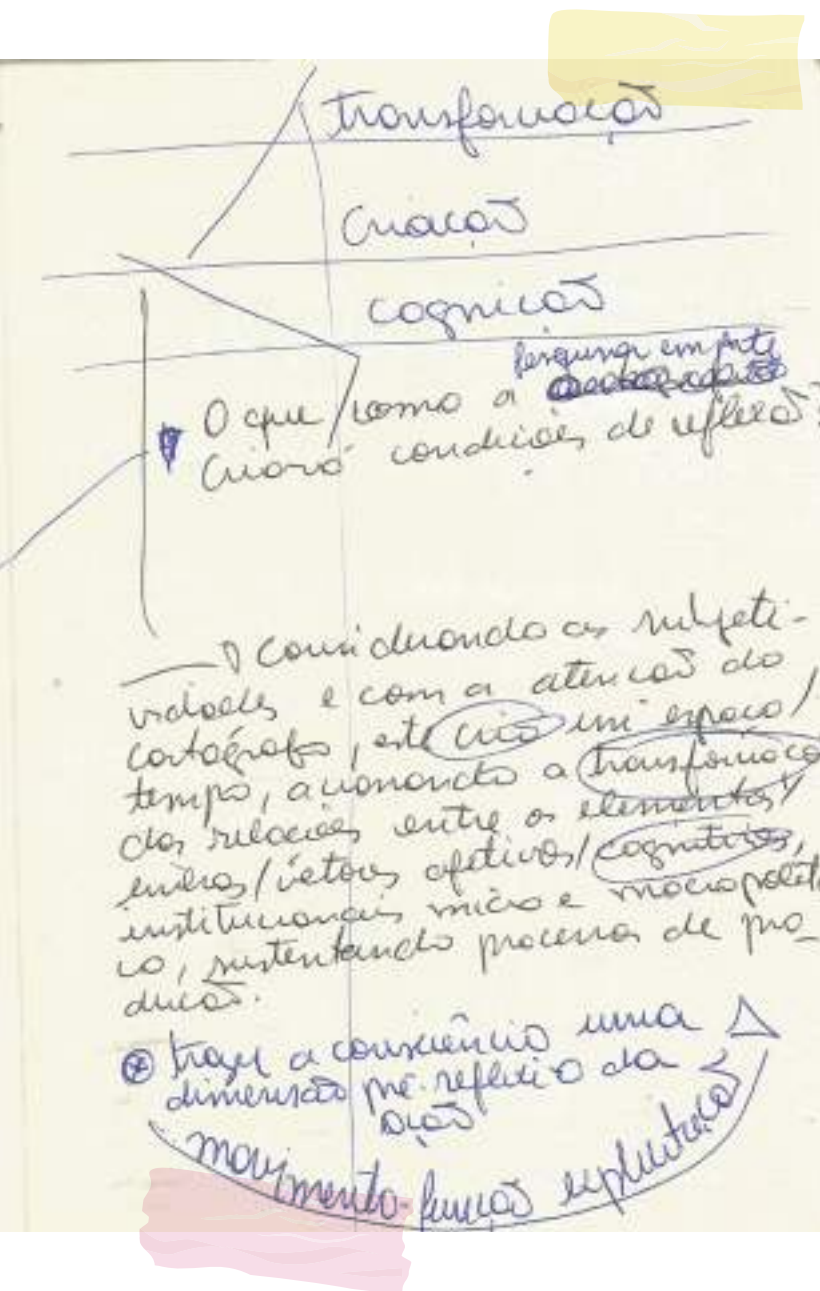 transformação
Criação
cognição
Pesquisar em Arte
O que / como a
Criará condições de reflexão?
Considerando as subjeti-
vidades e com a atenção do
cartógrafo, este cria um espaço/
tempo, acionando a transformação
das relações entre os elementos/
/vetores afetivos/cognitivos,
institucionais micro e macropolíti
co, sustentando processos de pro-
dução.
trazer a consciência uma
dimensão pré-reflexi da
ação
movimento-função explicitação